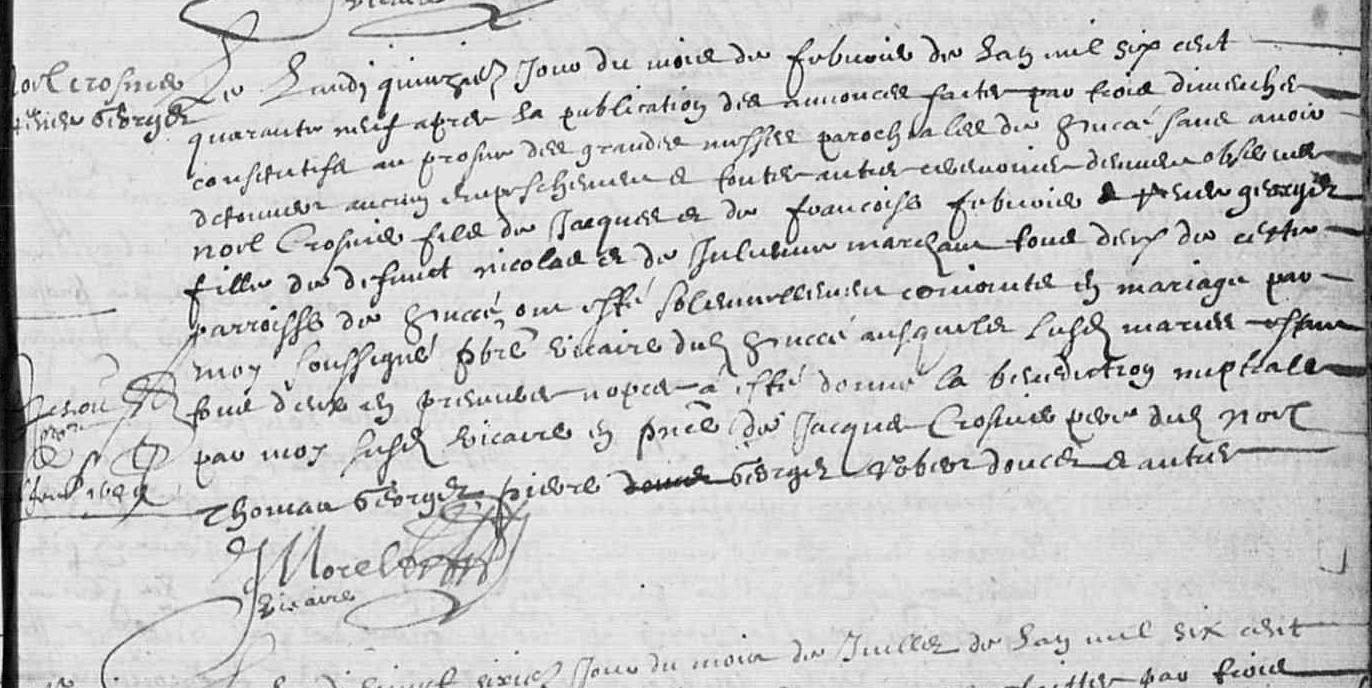 vicaire
Noel Crosnie
George
Le Lundy quinziesme Jour du mois de febvrie de Lan mil six cent
quarante neuf apres la publication des annonces faites par trois dimenches
consecutifs au prosne des grandes messes parochiales de Succé sans avoir
descouvert aucun empeschement et toutes autres ceremonies deument observees
Noel Crosnie fils de Jacques et de francoise febvrie et George
fille de defunct nicolas et de Julienne marchant tous deux de cette
parroisse de Succé ont esté solennellement conioints en mariage par
moy soussigné pbre vicaire dud Succé ausquels susd maries estant
tous deux en premieres nopces a esté donné la benediction nuptiale
par moy susd vicaire en pnce de Jacques Crosnie pere dud Noel
Thomas George pierre George Rober doucet et autres
J Morel
vicaire
Jour du mois de Juillet de Lan mil six cent
par trois